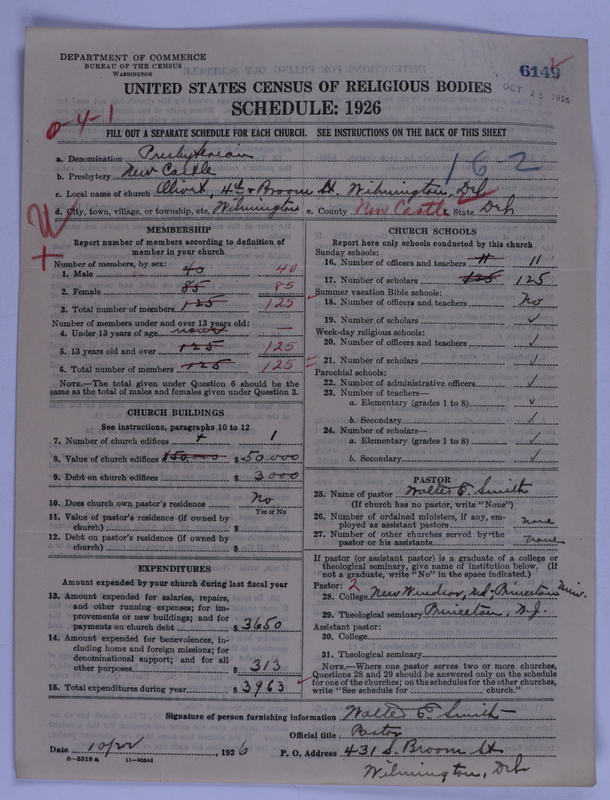 DEPARTMENT OF COMMERCE
BUREAU OF THE CENSUS
WASHINGTON
6149
OCT 25 1926
UNITED STATES CENSUS OF RELIGIOUS BODIES
SCHEDULE: 1926
0-4-1
FILL OUT A SEPARATE SCHEDULE FOR EACH CHURCH. SEE INSTRUCTIONS ON THE BACK OF THIS SHEET
a. Denomination Presbyterian
162
b. Presbytery New Castle
c. Local name of church Olivet, 4th & Broom St. Wilmington, Del.
d. City, town, village, or township, etc. Wilmington e. County New Castle State Del.
MEMBERSHIP
Report number of members according to definition of
member in your church
Number of members, by sex:
1. Male 40 40
2. Female 85 85
3. Total number of members 125 125
Number of members under and over 13 years old:
4. Under 13 years of age none —
5. 13 years old and over 125 125
6. Total number of members 125 125
NOTE.—The total given under Question 6 should be the
same as the total of males and females given under Question 3.
CHURCH BUILDINGS
See instructions, paragraphs 10 to 12
7. Number of church edifices 1 1
8. Value of church edifices $50,000 $50,000
9. Debt on church edifices $3000
10. Does church own pastor's residence No
Yes or No
11. Value of pastor's residence (if owned by
church) $
12. Debt on pastor's residence (if owned by
church) $
EXPENDITURES
Amount expended by your church during last fiscal year
13. Amount expended for salaries, repairs,
and other running expenses; for im-
provements or new buildings; and for
payments on church debt $3650
14. Amount expended for benevolences, in-
cluding home and foreign missions; for
denominational support; and for all
other purposes $313
15. Total expenditures during year $3963
CHURCH SCHOOLS
Report here only schools conducted by this church
Sunday schools:
16. Number of officers and teachers 11 11
17. Number of scholars 125 125
Summer vacation Bible schools:
18. Number of officers and teachers No
19. Number of scholars ✓
Week-day religious schools:
20. Number of officers and teachers ✓
21. Number of scholars ✓
Parochial schools:
22. Number of administrative officers ✓
23. Number of teachers—
a. Elementary (grades 1 to 8) ✓
b. Secondary ✓
24. Number of scholars—
a. Elementary (grades 1 to 8) ✓
b. Secondary ✓
PASTOR
25. Name of pastor Walter E. Smith
(If church has no pastor, write "None")
26. Number of ordained ministers, if any, em-
ployed as assistant pastors none
27. Number of other churches served by the
pastor or his assistants none
If pastor (or assistant pastor) is a graduate of a college or
theological seminary, give name of institution below. (If
not a graduate, write "No" in the space indicated.)
Pastor: 2
28. College New Windsor, Md. Princeton Univ.
29. Theological seminary Princeton, N.J.
Assistant pastor:
30. College
31. Theological seminary
NOTE.—Where one pastor serves two or more churches,
Questions 28 and 29 should be answered only on the schedule
for one of the churches; on the schedules for the other churches,
write "See schedule for church."
Signature of person furnishing information Walter E. Smith
Official title Pastor
Date 10/22, 1926 P. O. Address 431 S. Broom St
8—5518 a 11—9056d
Wilmington, Del.